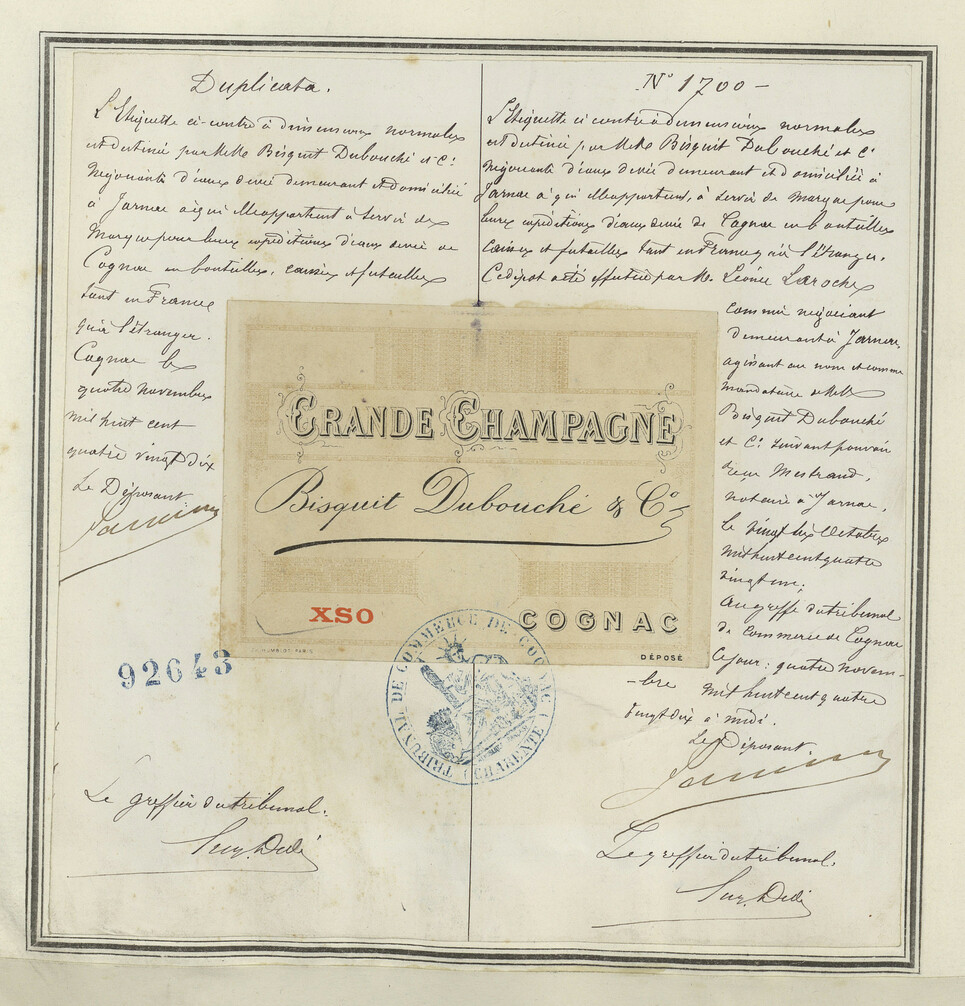 Duplicata.
L'Etiquette ci-contre à dimensions normales
est destinée par MM Bisquit Dubouché et Cie
Negociants d'eaux de vie demeurant et domiciliés
à Jarnac à qui elle appartient à servir de
Marque pour leurs expéditions d'eaux de vie de
Cognac en bouteilles, caisses et futailles
tant en France
qu'à l'étranger.
Cognac le
quatre novembre
mil huit cent
quatre vingt dix
Le Déposant
92643
Le greffier du tribunal.
N° 1700 -
L'Etiquette ci contre à dimensions normales
est destinée par MM Bisquit Dubouché et Cie
Negociants d'eaux de vie demeurant et domiciliés à
Jarnac à qui elle appartient, à servir de marque pour
leurs expéditions d'eaux de vie de Cognac en bouteilles
caisses et futailles tant en France qu'à l'étranger.
Ce dépot a été effectué par M. Léonce Laroche
commis négociant
demeurant à Jarnac,
agissant au nom et comme
mandataire de MM
Bisquit Dubouché
et Cie suivant pouvoir
reçu Mestraud,
notaire à Jarnac,
le vingt six Octobre
mil huit cent quatre
vingt
Au greffe du tribunal
de Commerce de Cognac
Ce jour: quatre Novem-
-bre mil huit cent quatre
vingt dix à midi.
Le Déposant
Le greffier du tribunal.
GRANDE CHAMPAGNE
Bisquit Dubouché & Co
XSO
COGNAC
HUMBLOT PARIS
DÉPOSÉ
TRIBUNAL DE COMMERCE DE COGNAC (CHARENTE)